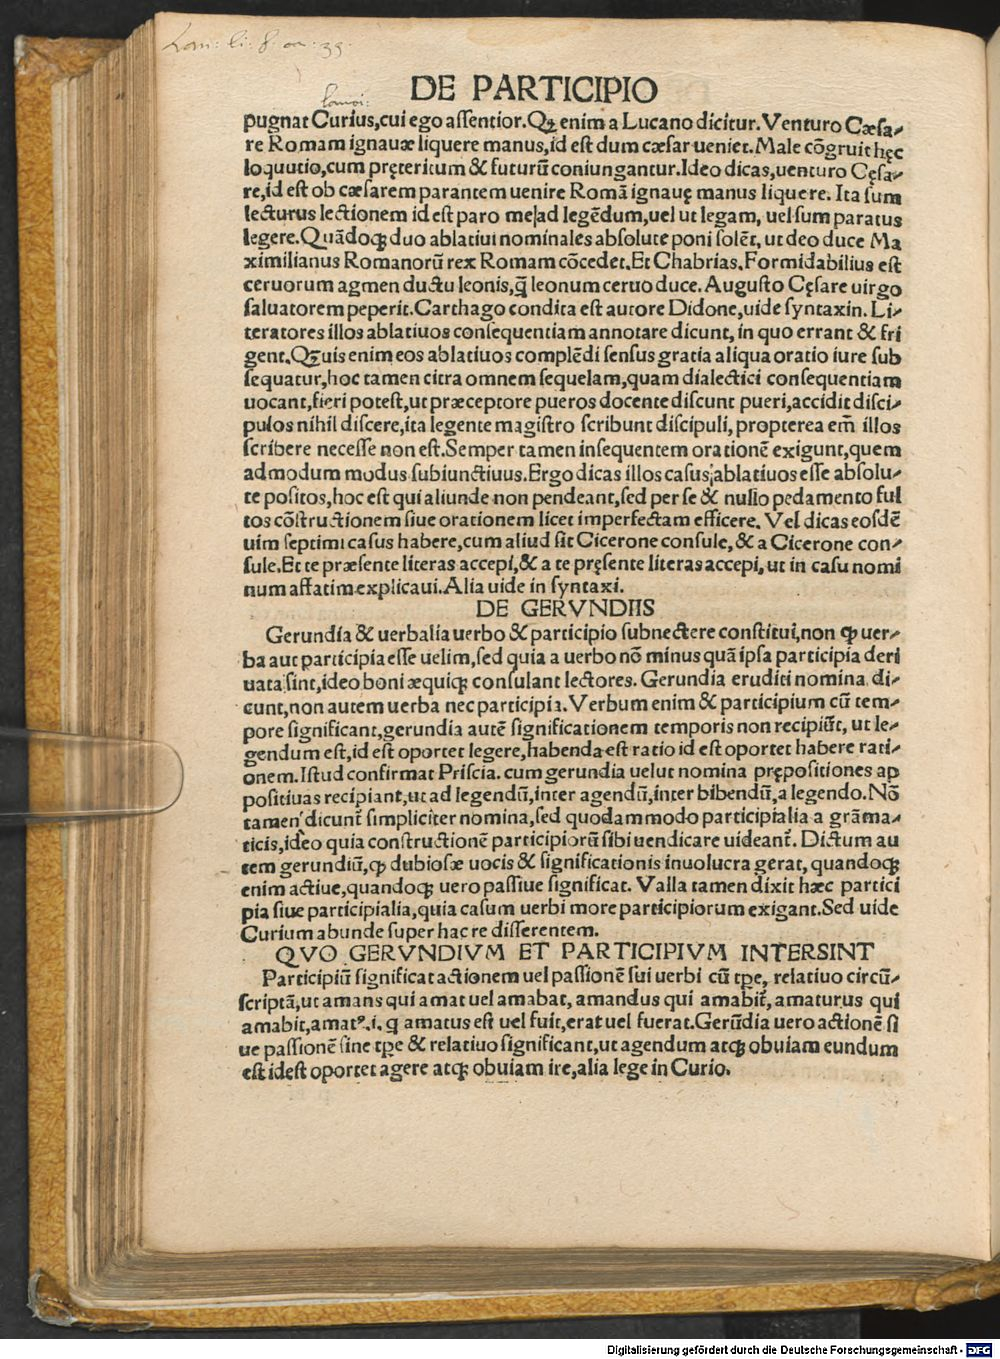 DE PARTICIPIO
pugnat Curius,cui ego assentior.Qꝫ enim a Lucano dicitur.Venturo Cæsa-
re Romam ignauæ liquere manus,id est dum cæsar ueniet.Male cõgruit hęc
loquutio,cum pręteritum & futurũ coniungantur.Ideo dicas,uenturo Cęsa-
re,id est ob cæsarem parantem uenire Romã ignauę manus liquere. Ita sum
lecturus lectionem id est paro me|ad legẽdum,uel ut legam, uel sum paratus
legere.Quãdoqꝫ duo ablatiui nominales absolute poni solẽt, ut deo duce Ma
ximilianus Romanorũ rex Romam cõcedet.Et Chabrias.Formidabilius est
ceruorum agmen ductu leonis,q̃ leonum ceruo duce. Augusto Cęsare uirgo
saluatorem peperit.Carthago condita est autore Didone,uide syntaxin. Li-
teratores illos ablatiuos consequentiam annotare dicunt, in quo errant & fri
gent.Qꝫuis enim eos ablatiuos complẽdi sensus gratia aliqua oratio iure sub
sequatur,hoc tamen citra omnem sequelam,quam dialectici consequentiam
uocant,fieri potest,ut præceptore pueros docente discunt pueri,accidit disci-
pulos nihil discere,ita legente magistro scribunt discipuli, propterea em̃ illos
scribere necesse non est.Semper tamen insequentem orationẽ exigunt,quem
admodum modus subiunctiuus.Ergo dicas illos casus ablatiuos esse absolu-
te positos,hoc est qui aliunde non pendeant,sed per se & nullo pedamento ful
tos cõstructionem siue orationem licet imperfectam efficere. Vel dicas eosdẽ
uim septimi casus habere,cum aliud sit Cicerone consule,& a Cicerone con-
sule.Et te præsente literas accepi,& a te pręsente literas accepi, ut in casu nomi
num affatim explicaui.Alia uide in syntaxi.
DE GERVNDIIS
Gerundia & uerbalia uerbo & participio subnectere constitui,non ꝙ uer-
ba aut participia esse uelim,sed quia a uerbo nõ minus quã ipsa participia deri
uata sint,ideo boni æquiqꝫ consulant lectores. Gerundia eruditi nomina di-
cunt,non autem uerba nec participia. Verbum enim & participium cũ tem-
pore significant,gerundia autẽ significationem temporis non recipiũt, ut le-
gendum est,id est oportet legere,habenda est ratio id est oportet habere rati-
onem.Istud confirmat Priscia. cum gerundia uelut nomina prępositiones ap
positiuas recipiant,ut ad legendũ,inter agendũ,inter bibendũ,a legendo. Nõ
tamen dicunt̃ simpliciter nomina, sed quodammodo participialia a grãma-
ticis,ideo quia constructionẽ participiorũ sibi uendicare uideant̃. Dictum au
tem gerundiũ,ꝙ dubiosæ uocis & significationis inuolucra gerat, quandoqꝫ
enim actiue,quandoqꝫ uero passiue significat. Valla tamen dixit hæc partici
pia siue participialia,quia casum uerbi more participiorum exigant.Sed uide
Curium abunde super hac re disserentem.
QVO GERVNDIVM ET PARTICIPIVM INTERSINT
Participiũ significat actionem uel passionẽ sui uerbi cũ tp̃e, relatiuo circũ-
scriptã,ut amans qui amat uel amabat, amandus qui amabit̃, amaturus qui
amabit,amatꝰ.i. q̃ amatus est uel fuit,erat uel fuerat.Gerũdia uero actionẽ si
ue passionẽ sine tp̃e & relatiuo significant,ut agendum atqꝫ obuiam eundum
est idest oportet agere atqꝫ obuiam ire,alia lege in Curio.
Digitalisierung gefördert durch die Deutsche Forschungsgemeinschaft - DFG